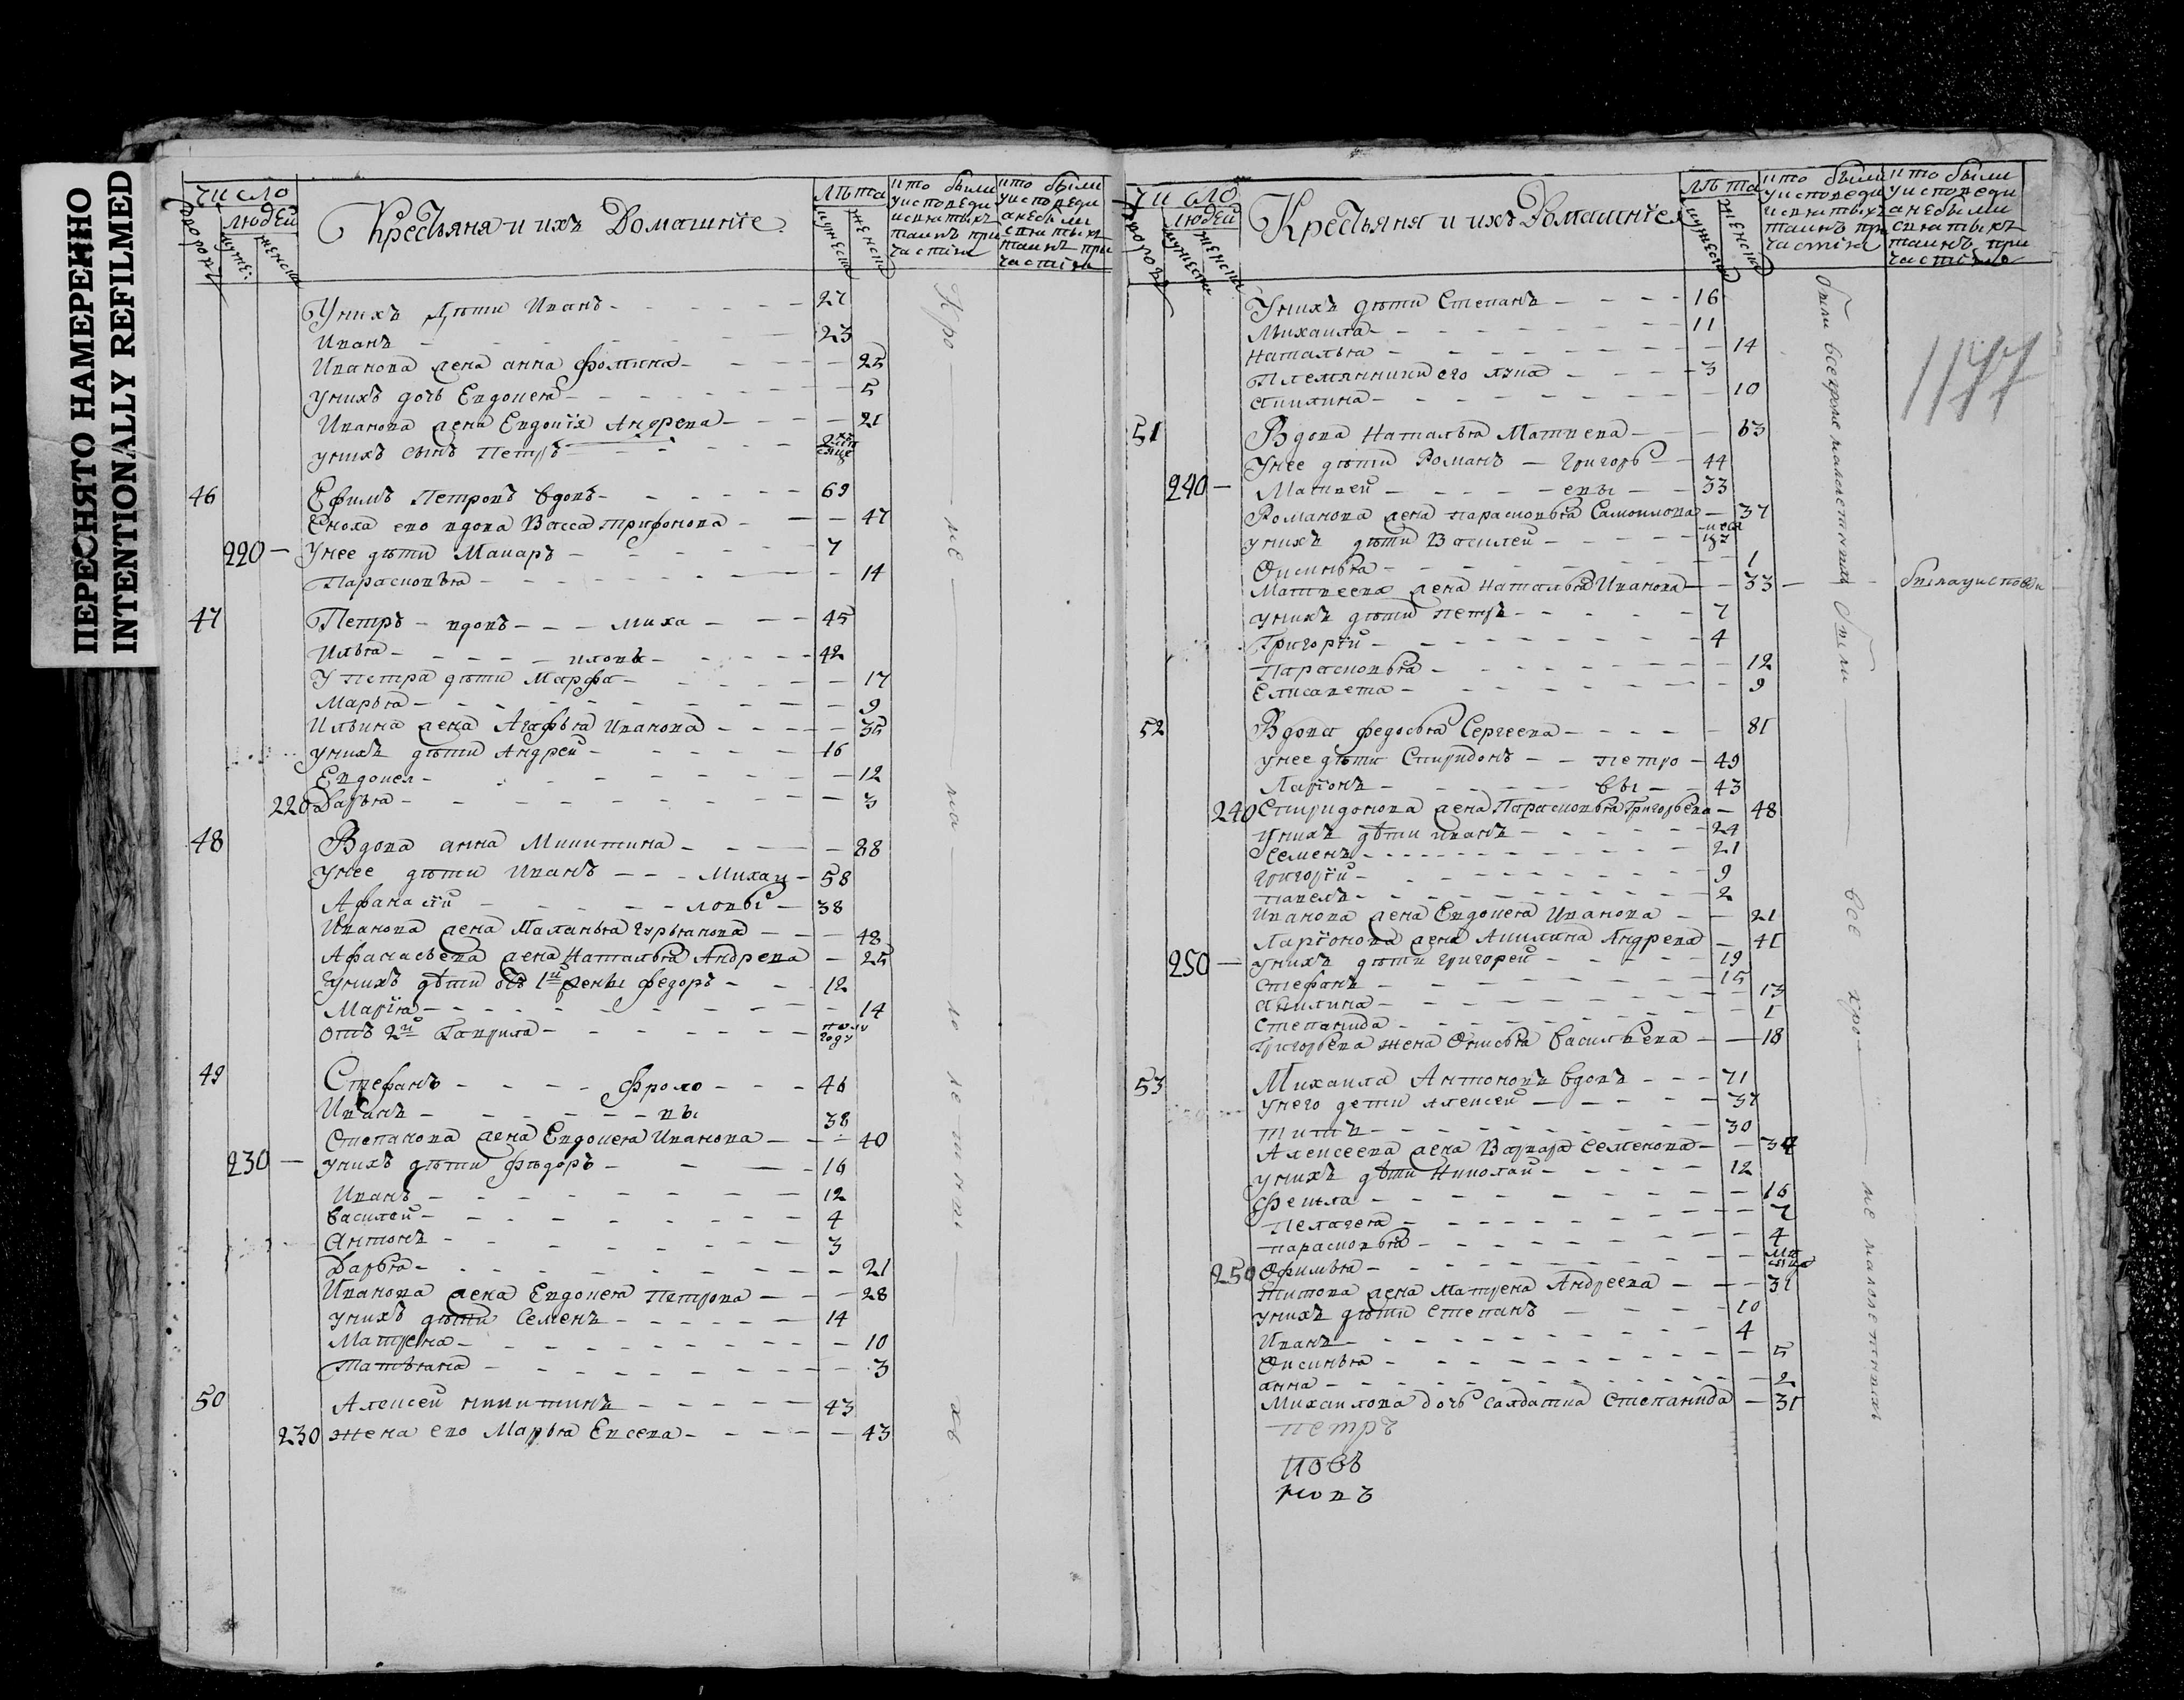 ПЕРЕСНЯТО НАМЕРЕННО
INTENTIONALLY REFILMED
число
дворовъ
людей
мужс:
женска
Крестьяня и ихъ Домашніе
лѣта
мужеска
женска
кто были у исповеди и святыхъ таинъ причастия
кто были у исповеди а не были святыхъ таинъ причастия
У нихъ дѣти Иванъ - 27
Иванъ - 23
Иванова жена анна фомина - 25
у нихъ дочь Евдокея - 5
Иванова жена Евдокія Андрева - 21
у нихъ сынъ Петръ
46 Ефимъ Петровъ вдовъ - 69
Сноха ево вдова Васса трифонова - 47
220 - У нее дѣти Макаръ - 7
Парасковья - 14
47 Петръ - вдовъ - - - миха - 45
Илья - иловы - 42
У петра дѣти Марфа - 17
Марья - 9
Ильина жена Агафья Иванова - 35
у нихъ дѣти Андрей - 16
Евдокея - 12
220 Дарья - 3
48 Вдова анна Микитина - 88
У нее дѣти Иванъ - - - Михаи - 58
Афанасій - ловы - 38
Иванова жена Маланья гурьянова - 48
Афанасьева жена Наталья Андрева - 25
У нихъ дѣти отъ 1й жены федоръ - 12
Марія - 14
отъ 2й Гаврила - полу году
49 Стефанъ - фроло - 46
Иванъ - вы 38
Степанова жена Евдокея Иванова - 40
230 - у нихъ дѣти Фѣдоръ - 16
Иванъ - 12
Василей - 4
Антонъ - 3
Дарья - 21
Иванова жена Евдокея петрова - 28
у нихъ дѣти Семенъ - 14
Матрена - 10
Татьяна - 3
50 Алексей никитинъ - 43
230 жена ево Марья Евсева - 43
Кро - ме - ма - ло - ле - тны - хъ
число
дворовъ
людей
мужеска
женска
Крестьяня и ихъ Домашніе
лѣта
мужеска
женска
кто были у исповеди и святыхъ таинъ причастия
кто были у исповеди а не были святыхъ таинъ причастия
1177
У нихъ дѣти Степанъ - 16
Михаила - 11
Наталья - 14
Племянники его лука - 3
акилина - 10
51 Вдова Наталья Матвева - 63
У нее дѣти Романъ - Григорь - 44
240 - Матвей - евы - 33
Романова жена парасковья Самоилова - 37
у нихъ дѣти Василей
Оксинья - 1
Матвеева жена Наталья Иванова - 33 - была у исповеди
у нихъ дѣти петръ - 7
Григорій - 4
Парасковья - 12
Елисавета - 9
52 Вдова федосья Сергеева - 81
у нее дѣти Спиридонъ - - петро - 49
Ларіонъ - вы - 43
240 Спиридонова жена Парасковья Григорьева - 48
У нихъ дѣти иванъ - 24
Семенъ - 21
Григорій - 9
павелъ - 2
Иванова жена Евдокея Иванова - 21
Ларіонова жена Акилина Андрева - 41
250 - у нихъ дѣти григорей - 19
стефанъ - 15
акилина - 13
степанида - 1
Григорьева жена Онисья василиева - 18
53 Михаила Антоновъ вдовъ - 71
у него дети алексей - 37
титъ - 30
Алексеева жена Варвара Семенова - 34
у нихъ дѣти Николай - 12
фекла - 16
пелагея - 7
парасковья - 4
250 Офимья
титова жена Матрена Андреева - 31
у нихъ дѣти степанъ - 10
Иванъ - 4
Оксинья - 5
анна - 2
Михаилова дочь салдатка Степанида - 31
петръ
ковъ
были все кроме малолетныхъ были - все кро - ме малолетныхъ